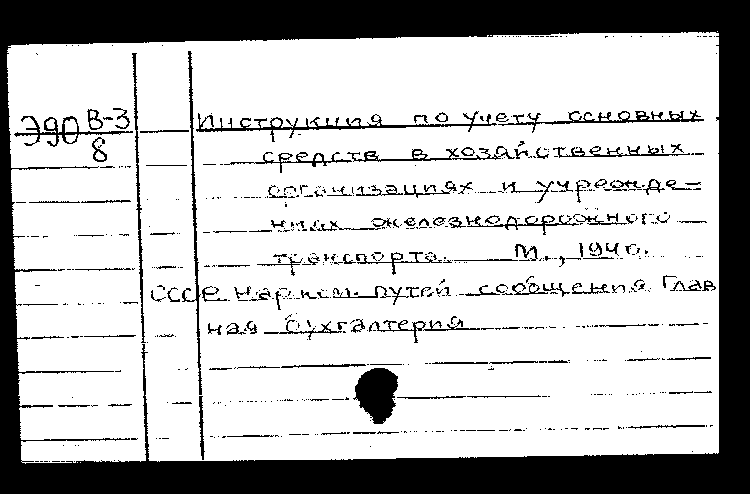 Э90 В-3
8
Инструкция по учету основных
средств в хозяйственных
организациях и учрежде-
ниях железнодорожного
транспорта. М., 1940.
СССР. Нарком. путей сообщения Глав
ная бухгалтерия